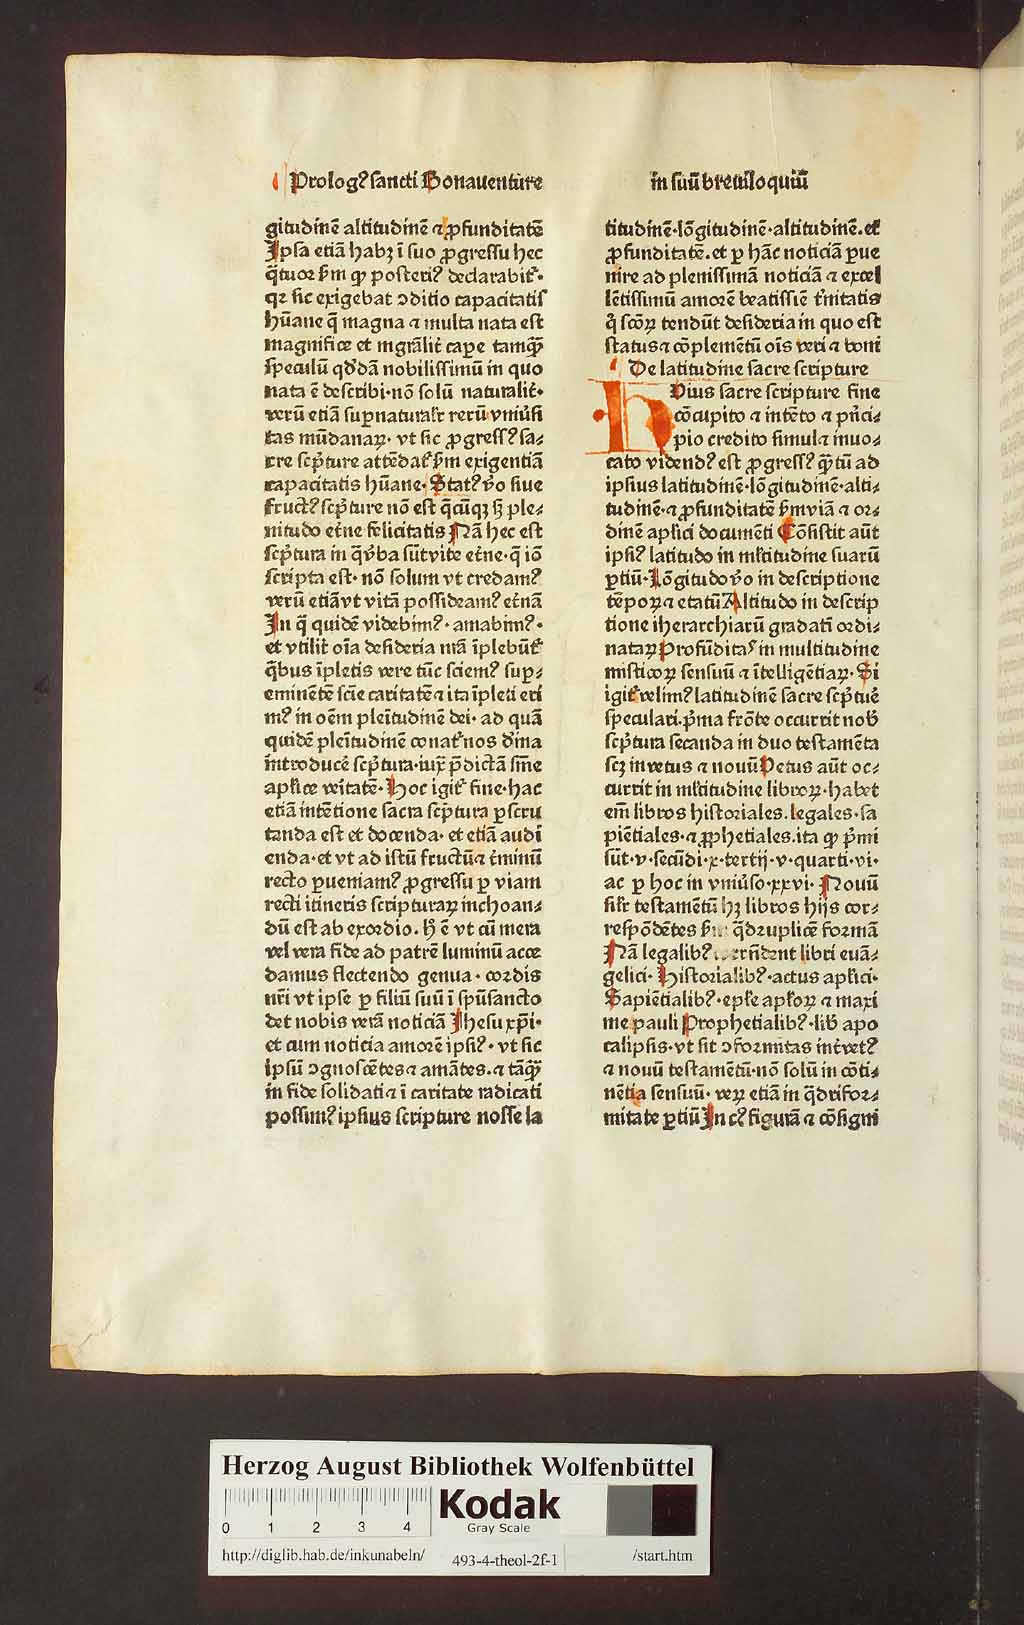 Prologꝰ sancti Bonauenture
in suū breuiloquiū
gitudinē altitudinē ⁊ ꝓfunditatē
Ipsa etiā habꝫ ī suo ꝓgressu hec
q̄tuor ẜm ꝙ posteriꝰ declarabit᷑·
qꝛ sic exigebat ↄditio capacitatis
hūane q̄ magna ⁊ multa nata est
magnifice et mgrālit᷑ caꝑe tamqᷓꝫ
speculū qd̓dā nobilissimū in quo
nata ē describi·nō solū naturalit᷑·
verū etiā suꝑnaturalr̄ rerū vniu᷑si
tas mūdanaꝝ· vt sic ꝓgressꝰ sa⸗
cre sc̓pture attēdat᷑ ẜm exigentiā
capacitatis hūane· Statꝰ v̓o siue
fructꝰ sc̓pture nō est q̄cūqꝫ sꝫ ple⸗
nitudo et᷑ne felicitatis Nā hec est
sc̓ptura in q̄ v̓ba sūt vite et᷑ne·q̄ iō
scripta est· nō solum vt credamꝰ
verū etiā vt vitā possideamꝰ et᷑nā
In q̄ quidē videbimꝰ· amabimꝰ·
et vtilit᷑ oīa desideria nr̄a īplebūt᷑
q̄bus īpletis vere tūc sciemꝰ suꝑ⸗
eminētē scīe caritatē ⁊ ita īpleti eri
mꝰ in oēm pleītudinē dei· ad quā
quidē pleītudinē conat᷑ nos dīna
introducē sc̓ptura·iuxͭ p̄dictā sn̄ie
apl̄ice veītatē· Hoc igit᷑ fine·hac
etiā intētione sacra sc̓ptura ꝑscru
tanda est et docenda· et etiā audi
enda·et vt ad istū fructū ⁊ t᷑minū
recto ꝑueniamꝰ ꝓgressu ꝑ viam
recti itineris scripturaꝝ inchoan⸗
dū est ab exordio. hͦ ē vt cū mera
vel vera fide ad patrē luminū acce
damus flectendo genua· cordis
nr̄i vt ipse ꝑ filiū suū ī spūsancto
det nobis verā noticiā Jhesu xp̄i·
et cum noticia amorē ipsiꝰ· vt sic
ipsū ↄgnoscētes ⁊ amātes. ⁊ tāqᷓꝫ
in fide solidati ⁊ ī caritate radicati
possimꝰ ipsius scripture nosse la
titudinē·lōgitudinē·altitudinē.et
ꝓfunditatē.et ꝑ hāc noticiā ꝑue
nire ad plenissimā noticiā ⁊ excel
lētissimū amorē beatissīe t᷑nitatis
q̓ sc̄oꝝ tendūt desideria in quo est
status ⁊ cōplementū oīs veri ⁊ boni
De latitudine sacre scripture
Huius sacre scripture fine
cōcupito ⁊ intēto ⁊ pn̓ci⸗
pio credito simul ⁊ inuo⸗
cato videndꝰ est ꝓgressꝰ q̄tū ad
ipsius latitudinē·lōgitudinē·alti⸗
tudinē·⁊ ꝓfunditatē ẜm viā ⁊ or⸗
dinē apl̄ici documēti Cōsistit aūt
ipsiꝰ latitudo in ml̓titudine suarū
ꝑtiū·Lōgitudo v̓o in descriptione
tēpoꝝ ⁊ etatū Altitudo in descrip
tione iherarchiarū gradatī ordi⸗
nataꝝ Profūditas in multitudine
misticoꝝ sensuū ⁊ ītelligētiaꝝ· Si
igit᷑ velimꝰ latitudinē sacre sc̓ptue᷑
speculari.pͥma frōte occurrit nob̓
sc̓ptura secanda in duo testamēta
scꝫ in vetus ⁊ nouū Vetus aūt oc⸗
currit in ml̓titudine libroꝝ·habet
em̄ libros historiales.legales·sa
piētiales·⁊ ꝓphetiales.ita ꝙ pͥmi
sūt·v·secūdi·x·tertij·v·quarti·vi·
ac ꝑ hoc in vniu᷑so·xxvi· Nouū
silr̄ testamētū hꝫ libros hijs cor⸗
respōdētes q̄druplicē formā
Nā legalibꝰ libri euā⸗
gelici· Historialibꝰ·actus apl̄ici·
Sapiētialibꝰ·epl̄e apl̄oꝝ ⁊ maxi
me pauli Prophetialibꝰ·lib̓ apo
calipsis·vt sit ↄformitas int᷑ vetꝰ
⁊ nouū testamētū·nō solū in cōti⸗
nētia sensuū· veꝝ etiā in q̄drifor⸗
mitate ꝑtiū In cꝰ figurā ⁊ cōsigni
Herzog August Bibliothek Wolfenbüttel
0 1 2 3 4
Kodak
Gray Scale
http://diglib.hab.de/inkunabeln/
493-4-theol-2f-1
/start.htm